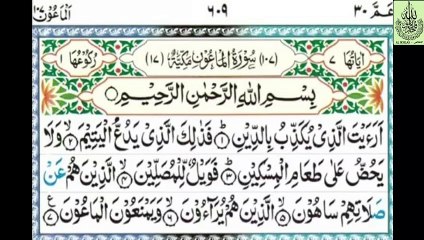 عَمَّ ٣٠ ٦٠٩ اَلْمَاعُوْن ١٠٧
اٰيَاتُهَا ٧ (١٠٧) سُوْرَةُ الْمَاعُوْنِ مَكِّيَّةٌ (١٧) رُكُوْعُهَا ١
بِسْمِ اللّٰهِ الرَّحْمٰنِ الرَّحِيْمِ
اَرَءَيْتَ الَّذِىْ يُكَذِّبُ بِالدِّيْنِ ١ فَذٰلِكَ الَّذِىْ يَدُعُّ الْيَتِيْمَ ٢ وَلَا
يَحُضُّ عَلٰى طَعَامِ الْمِسْكِيْنِ ٣ فَوَيْلٌ لِّلْمُصَلِّيْنَ ٤ الَّذِيْنَ هُمْ عَنْ
صَلَاتِهِمْ سَاهُوْنَ ٥ الَّذِيْنَ هُمْ يُرَآءُوْنَ ٦ وَيَمْنَعُوْنَ الْمَاعُوْنَ ٧ ع